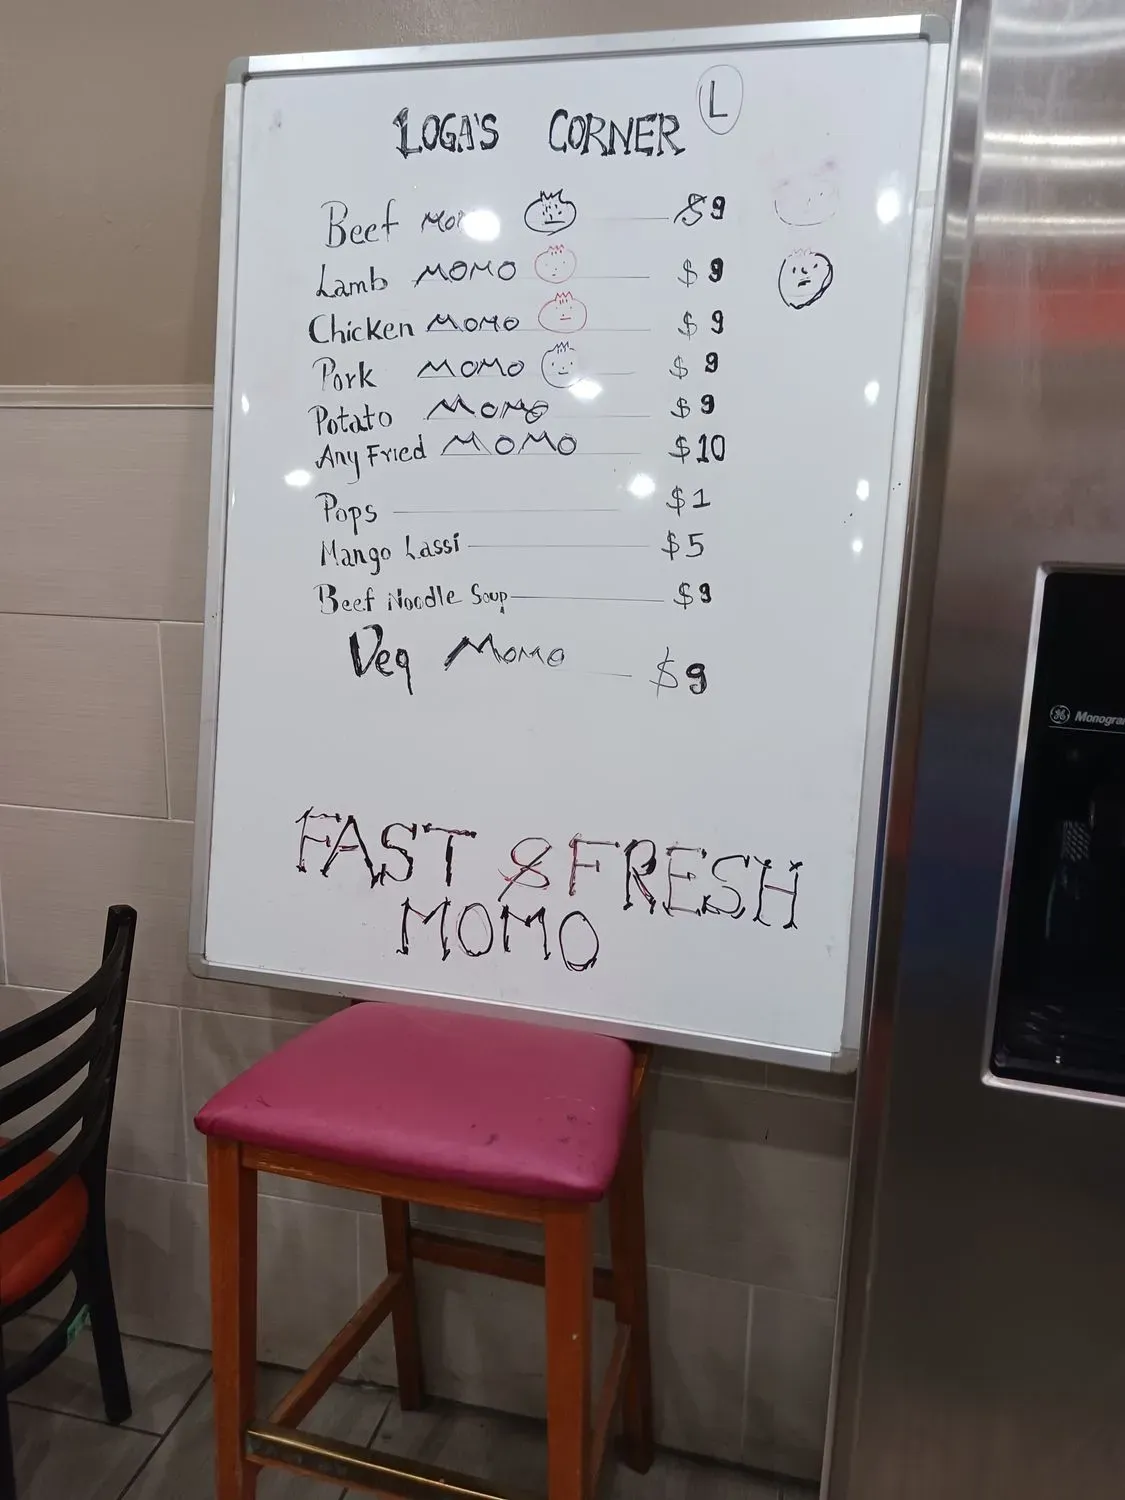 LOGA'S CORNER L
Beef MO $9
Lamb MOMO $9
Chicken MOMO $9
Pork MOMO $9
Potato MOMO $9
Any Fried MOMO $10
Pops $1
Mango Lassi $5
Beef Noodle Soup $9
Veg MOMO $9
FAST & FRESH
MOMO
Monogra